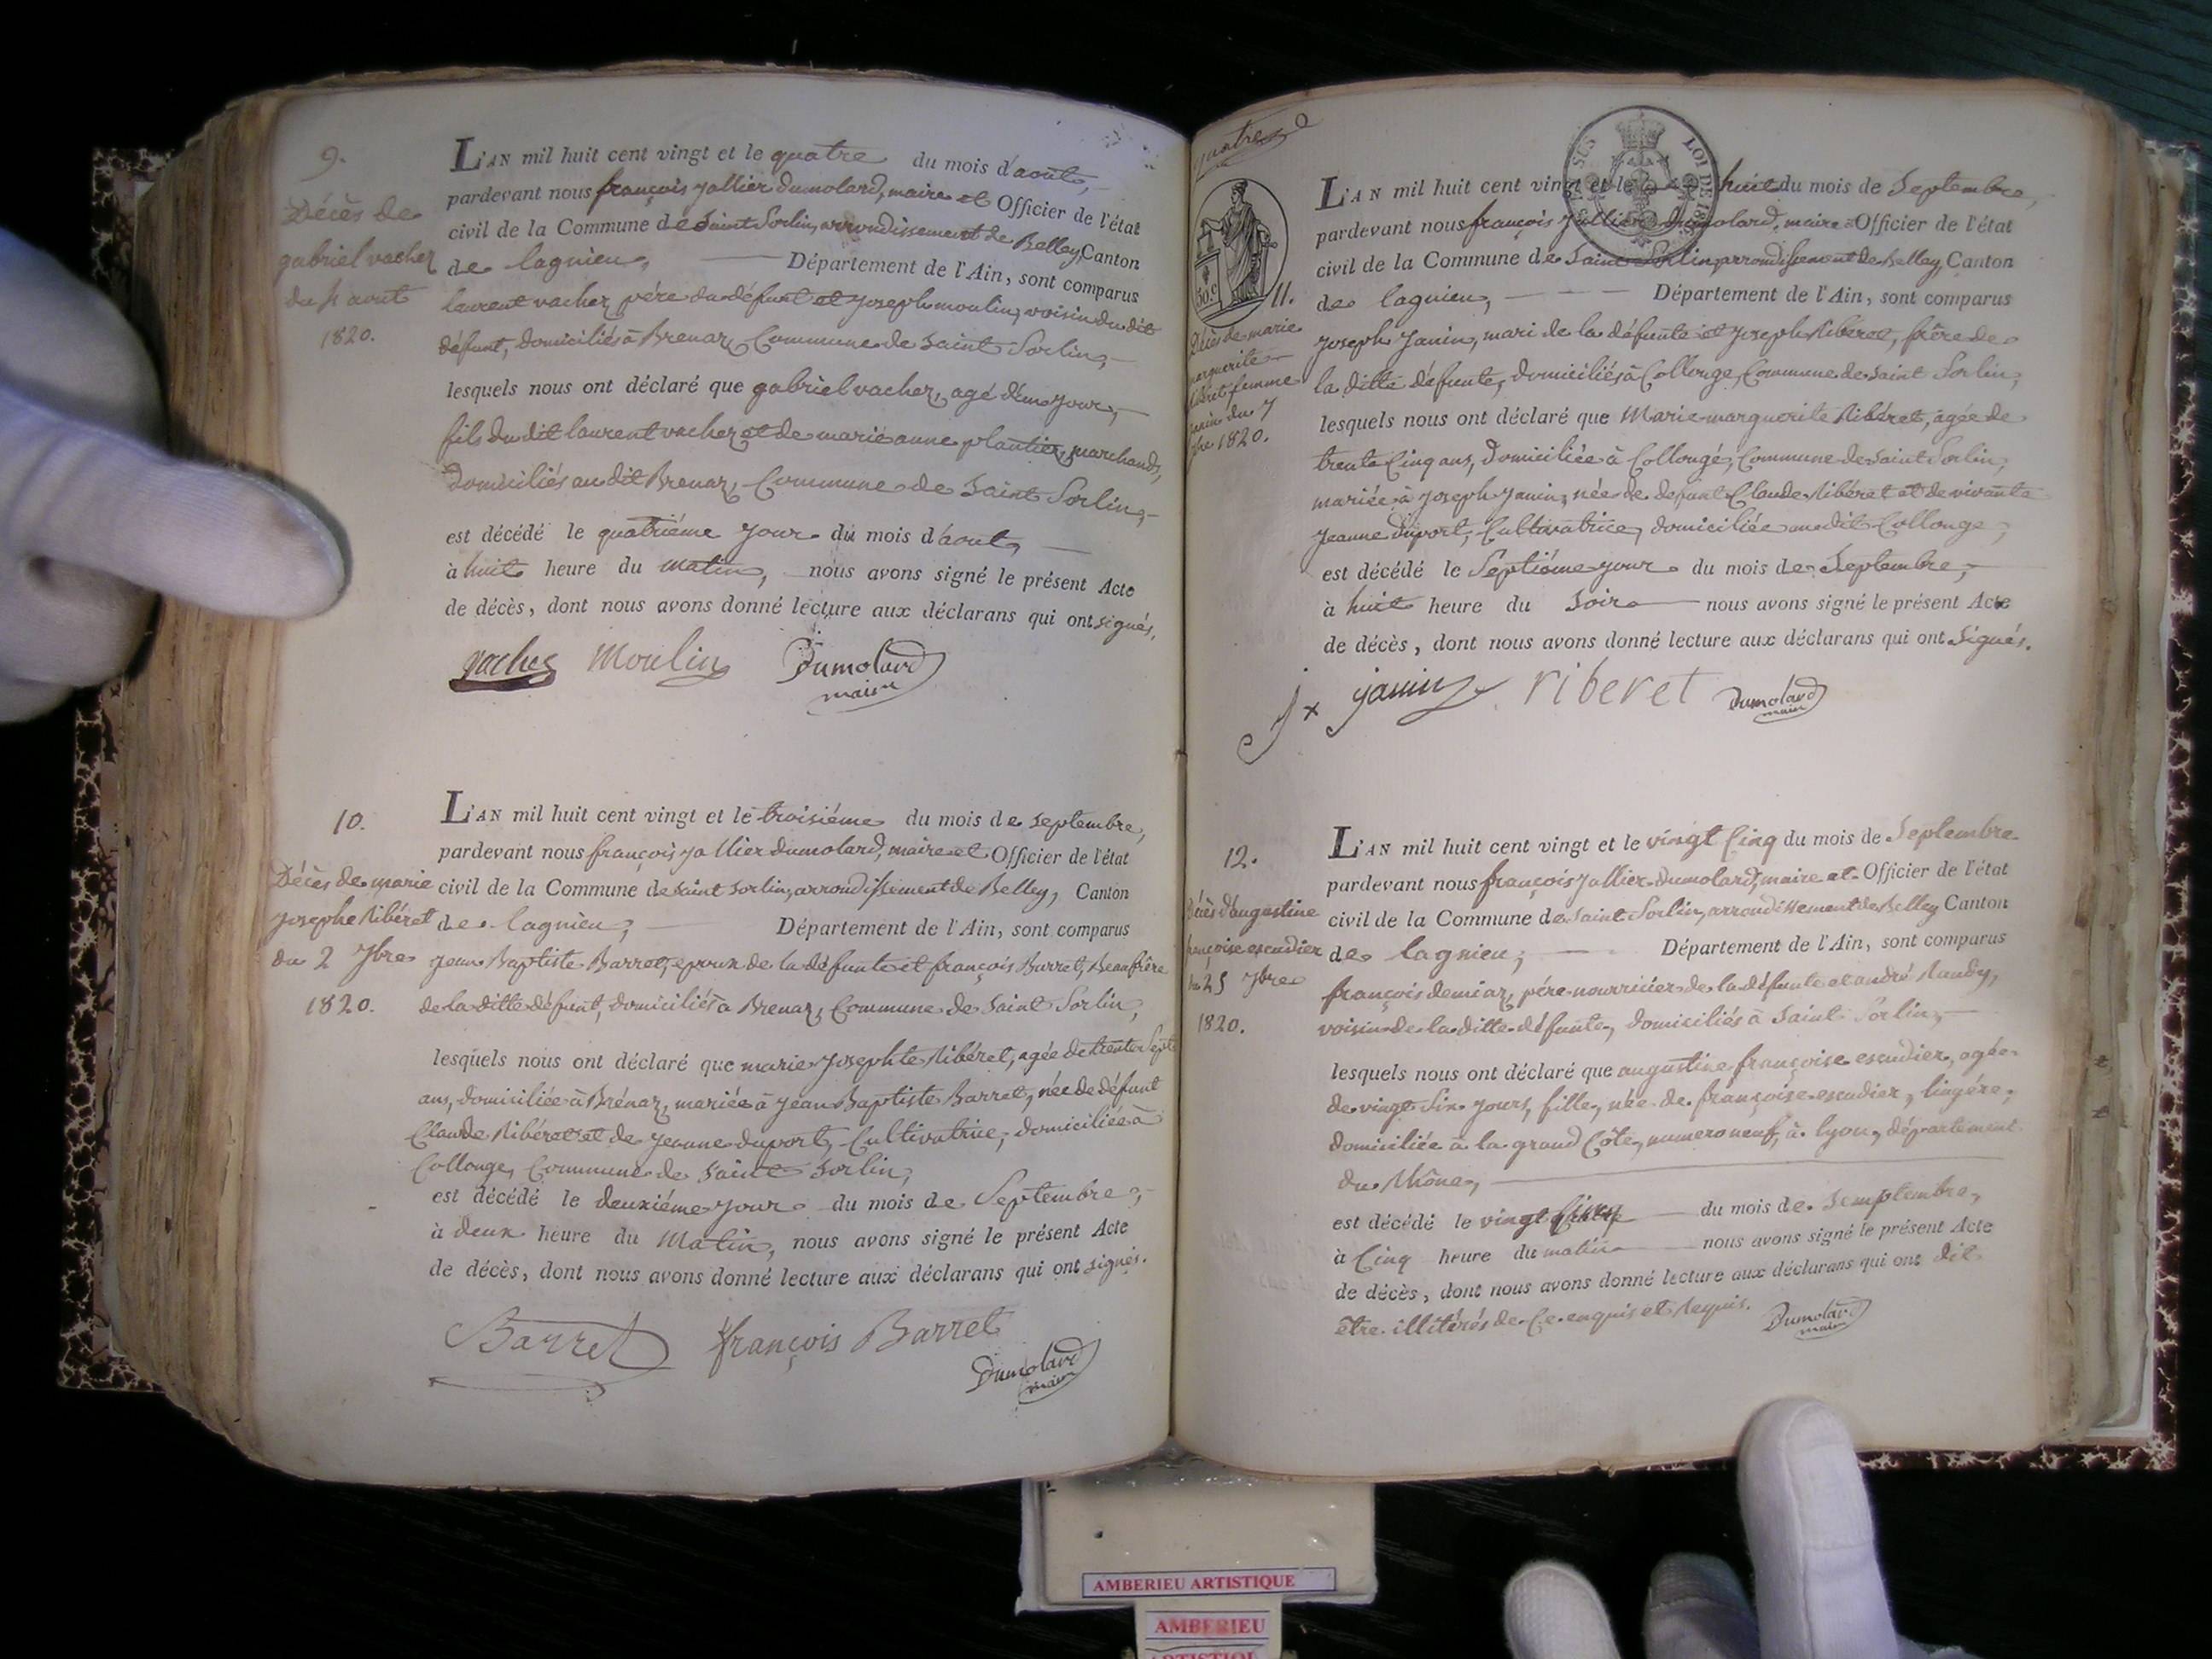 9.
Décès de
gabriel vacher
du 4 aout
1820.
L'AN mil huit cent vingt et le quatre du mois d'aout,
pardevant nous françois jallier dumolard, maire et Officier de l'état
civil de la Commune de Saint Sorlin, arrondissement de Belley, Canton
de lagnieu, Département de l'Ain, sont comparus
laurent vacher, père du défunt et joseph moulin, voisin du dit
défunt, domiciliés à Brenaz, Commune de Saint Sorlin,
lesquels nous ont déclaré que gabriel vacher, agé d'un jour,
fils du dit laurent vacher et de marie anne plantier, marchands,
domiciliés au dit Brenaz, Commune de Saint Sorlin,
est décédé le quatriéme jour du mois d'aout,
à huit heure du matin, nous avons signé le présent Acte
de décès, dont nous avons donné lecture aux déclarans qui ont signés.
vacher Moulin Dumolard
maire
10.
Décès de marie
josephe Ribéret
du 2 7bre
1820.
L'AN mil huit cent vingt et le troisiéme du mois de Septembre,
pardevant nous françois jallier dumolard, maire et Officier de l'état
civil de la Commune de Saint Sorlin, arrondissement de Belley, Canton
de lagnieu, Département de l'Ain, sont comparus
jean Baptiste Barret, epoux de la défunte et françois Barret, Beaufrère
de la ditte défunt, domiciliés à Brenaz, Commune de Saint Sorlin,
lesquels nous ont déclaré que marie josephte Ribéret, agée de trente Sept
ans, domiciliée à Brénaz, mariée à jean Baptiste Barret, née de défunt
Claude Ribéret et de jeanne duport, Cultivatrice, domiciliée à
Collonge, Commune de Saint Sorlin,
est décédé le deuxiéme jour du mois de Septembre,
à deux heure du Matin, nous avons signé le présent Acte
de décès, dont nous avons donné lecture aux déclarans qui ont signés.
Barret françois Barret
Dumolard
maire
quatre
SUS LOI DE 18
50.c
11.
Décès de marie
marguerite
Ribéret femme
janin du 7
7bre 1820.
L'AN mil huit cent vingt et le huit du mois de Septembre,
pardevant nous françois jallier dumolard, maire Officier de l'état
civil de la Commune de Saint Sorlin, arrondissement de Belley, Canton
de lagnieu, Département de l'Ain, sont comparus
joseph janin, mari de la défunte et joseph Ribéret, frère de
la ditte défunte, domiciliés à Collonge, Commune de Saint Sorlin,
lesquels nous ont déclaré que Marie marguerite Ribéret, agée de
trente Cinq ans, domiciliée à Collonge, Commune de Saint Sorlin,
mariée à joseph janin, née de defunt Claude Ribéret et de vivante
jeanne duport, Cultivatrice, domiciliée au dit Collonge,
est décédé le Septiéme jour du mois de Septembre,
à huit heure du soir nous avons signé le présent Acte
de décès, dont nous avons donné lecture aux déclarans qui ont Signés.
jx janin riberet Dumolard
maire
12.
Décès d'augustine
françoise escudier
du 25 7bre
1820.
L'AN mil huit cent vingt et le vingt Cinq du mois de Septembre
pardevant nous françois jallier Dumolard, maire et Officier de l'état
civil de la Commune de Saint Sorlin, arrondissement de Belley Canton
de lagnieu, Département de l'Ain, sont comparus
françois demiaz, père nourricier de la défunte et andré Naudy,
voisin de la ditte défunte, domiciliés à Saint Sorlin,
lesquels nous ont déclaré que augustine françoise escudier, agée
de vingt Six jours, fille, née de françoise escudier, lingére,
domiciliée à la grand Côte, numero neuf, à lyon, département
du Rhône,
est décédé le vingt Cinq du mois de Semptembre,
à Cinq heure du matin nous avons signé le présent Acte
de décès, dont nous avons donné lecture aux déclarans qui ont dit
être illitérés de Ce enquis et Requis. Dumolard
maire
AMBERIEU ARTISTIQUE
AMBERIEU
ARTISTIQUE